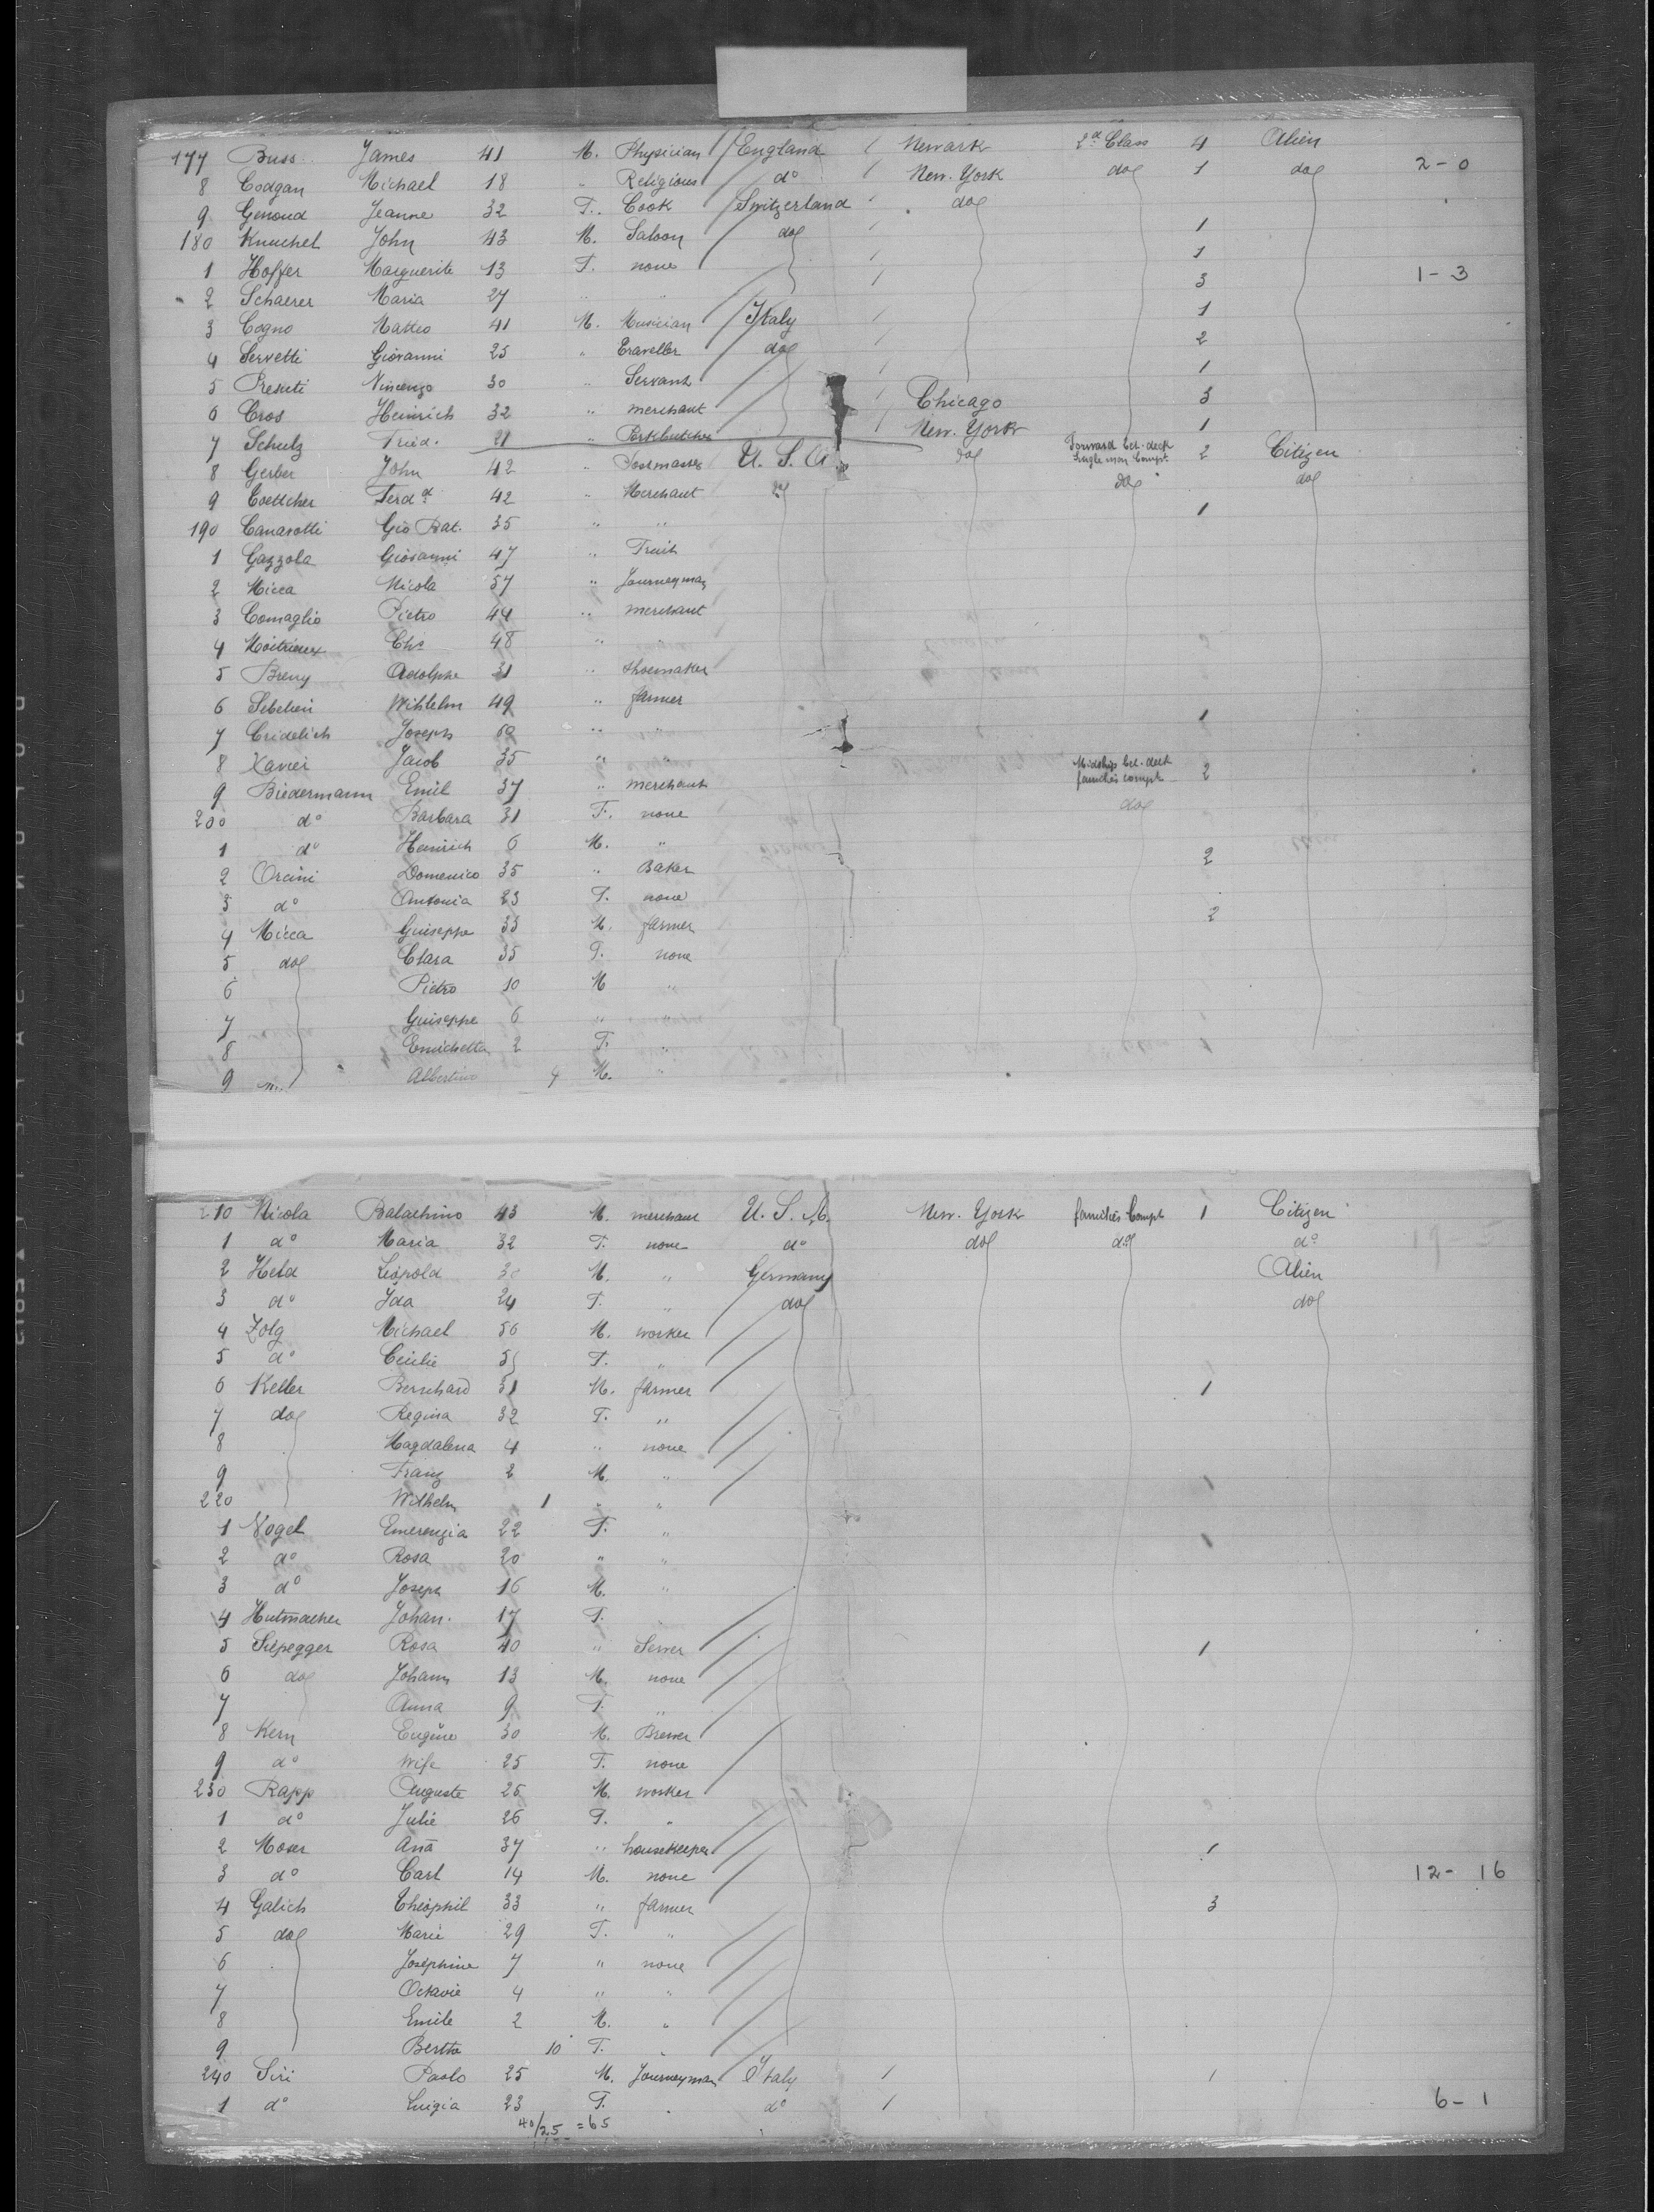 177 Buss James 41 M. Physician England Newark 2d Class 4 Alien
8 Codgan Michael 18 " Religious do New. York do 1 do 2-0
9 Genoud Jeanne 32 F. Cook Switzerland do
180 Knuchel John 43 M. Saloon do 1
1 Hoffer Marguerite 13 F. none 1
2 Schaerer Maria 27 " " 3 1-3
3 Cogno Matteo 41 M. Musician Italy 1
4 Servetti Giovanni 25 " Traveller do 2
5 Presuti Vincenzo 30 " Servant 1
6 Cros Heinrich 32 " merchant Chicago 3
7 Schulz Fried. 21 " Porkbutcher New. York 1
8 Gerber John 42 " Postmaster U. S. A. do Forward bet. deck Single men Compt. 2 Citizen
9 Coettcher Ferdd 42 " Merchant do do do
190 Canavotti Gio Bat. 35 " " 1
1 Gazzola Giovanni 47 " Fruit
2 Micca Nicola 57 " Journeyman
3 Comaglio Pietro 44 " merchant
4 Chs 48 " "
5 Breny Adolphe 31 " Shoemaker
6 Wihlelm 49 " farmer
7 Cridelich Joseph 60 " " 1
8 Xavier Jacob 35 " " Midship bet. deck families compt 2
9 Biedermann Emil 37 " merchant do
200 do Barbara 31 F. none
1 do Heinrich 6 M. "
2 Orcini Domenico 35 " Baker 2
3 do Antonia 23 F. none
4 Micca Guiseppe 33 M. farmer 2
5 do Clara 35 F. none
6 Pietro 10 M "
7 Guiseppe 6 " "
8 Enrichetta 2 F. "
9 Albertino 4 M. "
210 Nicola Balachino 43 M. merchant U. S. A. New. York families Compt 1 Citizen
1 do Maria 32 F. none do do do do
2 Held Léopold 30 M. " Germany Alien
3 do Ida 24 F. " do do
4 Zolg Michael 56 M. worker
5 do Cécilie 55 F. "
6 Keller Bernhard 31 M. farmer 1
7 do Regina 32 F. "
8 Magdalena 4 " none
9 Franz 2 M. "
220 Wilhelm 1 " "
1 Vogel Emerenzia 22 F. "
2 do Rosa 20 " "
3 do Joseph 16 M. "
4 Hutmacher Johan. 17 F.
5 Siepegger Rosa 40 " Sewer 1
6 do Johann 13 M. none
7 Anna 9 F. "
8 Kern Eugène 30 M. Brewer
9 do Wife 25 F. none
230 Rapp Auguste 25 M. worker
1 do Julie 26 F. "
2 Moser Ana 37 " housekeeper 1
3 do Carl 14 M. none 12- 16
4 Galich Théophil 33 " farmer 3
5 do Marie 29 F. "
6 Joséphine 7 " none
7 Octavie 4 " "
8 Emile 2 M. "
9 Bertha 10 F. "
240 Siri Paolo 25 M. Journeyman Italy 1
1 do Luigia 23 F. " do 6-1
40/25 =65